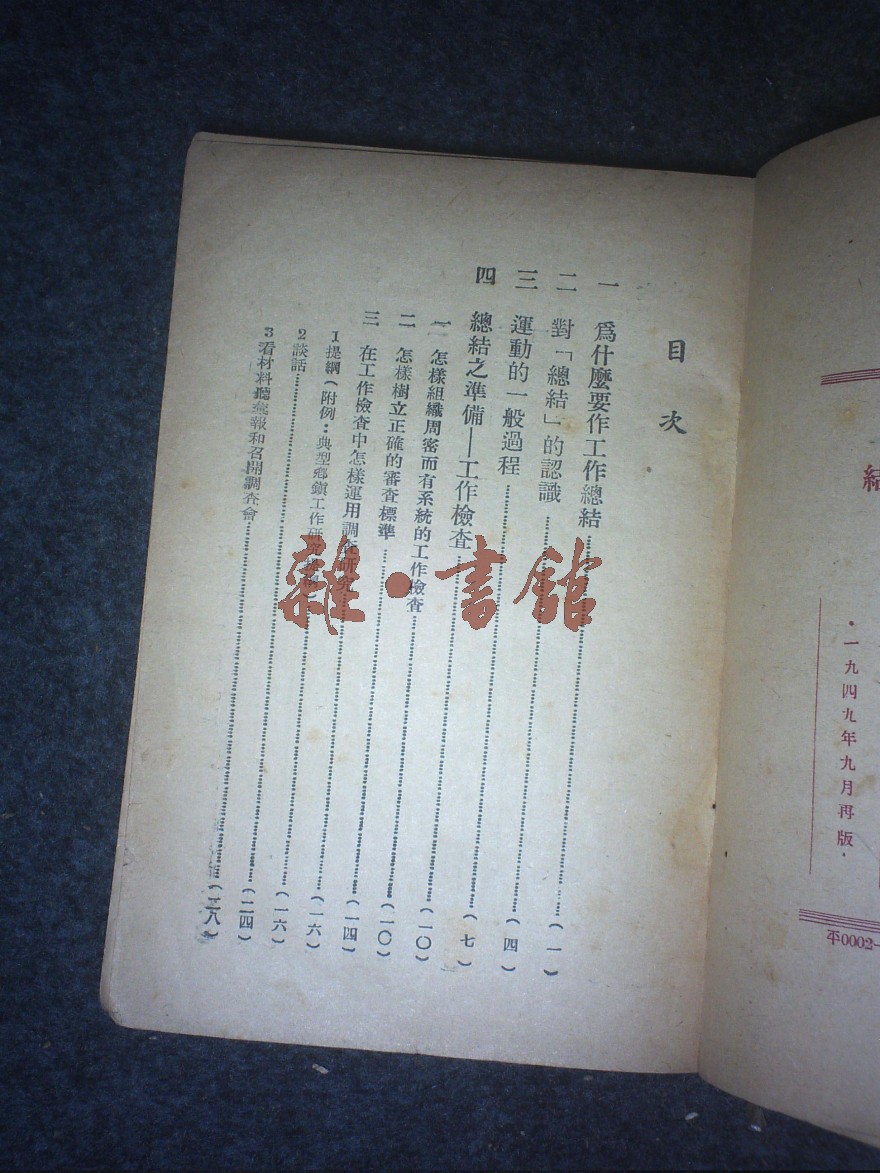 結
·一九四九年九月再版·
平0002-
目次
一 爲什麼要作工作總結……(一)
二 對「總結」的認識……(四)
三 運動的一般過程……(七)
四 總結之準備—工作檢查……(一〇)
一 怎樣組織周密而有系統的工作檢查……(一〇)
二 怎樣樹立正確的審查標準……(一四)
三 在工作檢查中怎樣運用調查研究……(一六)
1提綱(附例：典型鄉鎮工作研究提綱)……(一六)
2談話……(二四)
3看材料聽彙報和召開調查會……(二八)
雜·書館